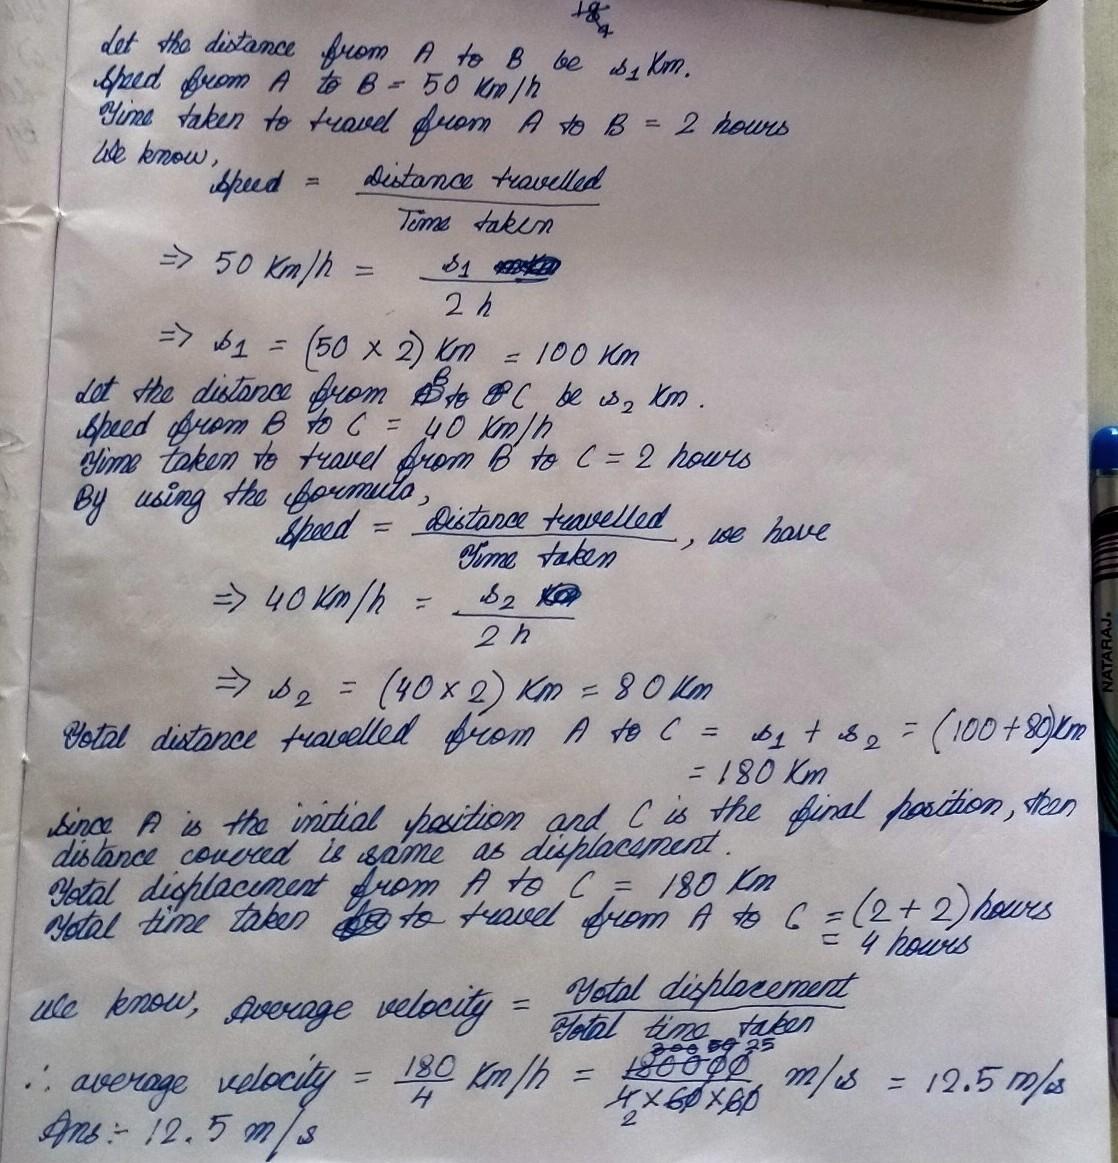 18
Let the distance from A to B be s1 Km.
Speed from A to B = 50 Km/h
Time taken to travel from A to B = 2 hours
We know,
Speed = Distance travelled / Time taken
=> 50 Km/h = s1 / 2 h
=> s1 = (50 x 2) Km = 100 Km
Let the distance from B to C be s2 Km.
Speed from B to C = 40 Km/h
Time taken to travel from B to C = 2 hours
By using the formula,
Speed = Distance travelled / Time taken, we have
=> 40 Km/h = s2 / 2 h
=> s2 = (40 x 2) Km = 80 Km
Total distance travelled from A to C = s1 + s2 = (100 + 80) Km
= 180 Km
Since A is the initial position and C is the final position, then
distance covered is same as displacement.
Total displacement from A to C = 180 Km
Total time taken to travel from A to C = (2 + 2) hours
= 4 hours
We know, Average velocity = Total displacement / Total time taken
300 50 25
∴ average velocity = 180 / 4 Km/h = 180000 / 4 x 60 x 60 m/s = 12.5 m/s
2
Ans :- 12.5 m/s
NATARAJ.